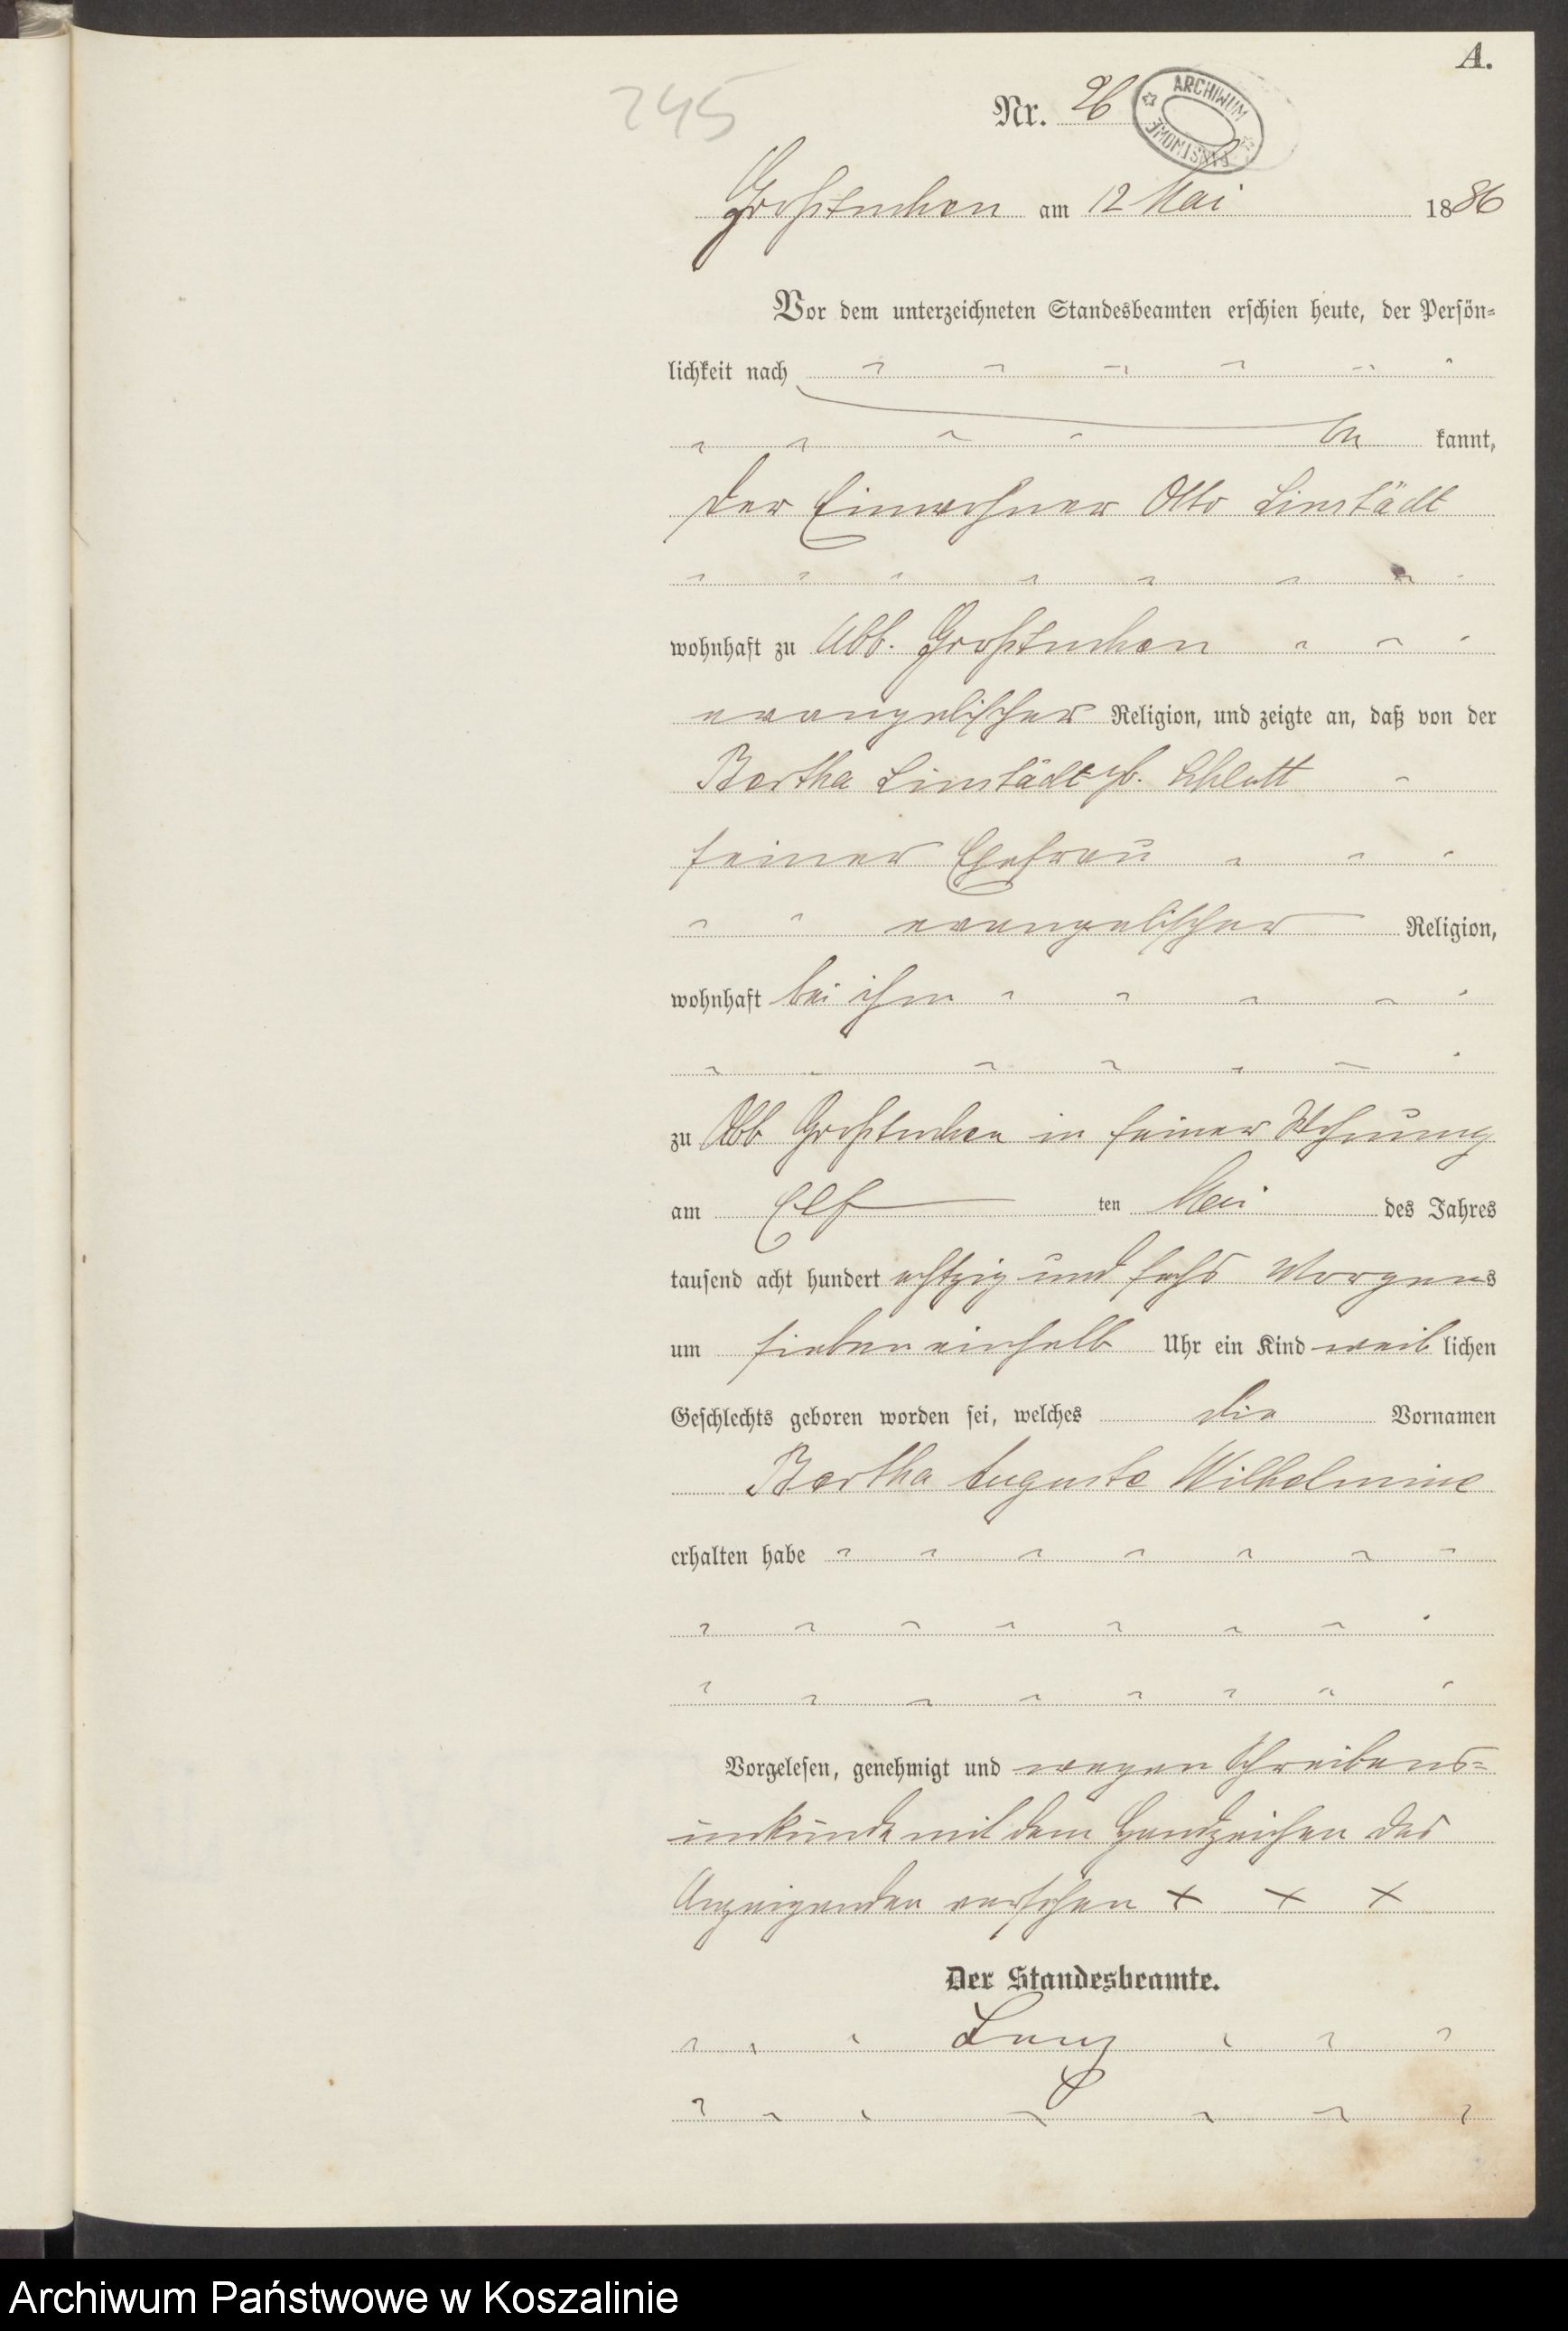 A.
245
Nr. 26
ARCHIWUM PAŃSTWOWE
Großtuchen am 12 Mai 1886
Vor dem unterzeichneten Standesbeamten erschien heute, der Persön-
lichkeit nach
be kannt,
der Einwohner Otto Linstädt
wohnhaft zu Abb. Großtuchen
evangelischer Religion, und zeigte an, daß von der
Bertha Linstädt geb.
seiner Ehefrau
evangelischer Religion,
wohnhaft bei ihm
zu Abb Großtuchen in seiner Wohnung
am Elf ten Mai des Jahres
tausend acht hundert achtzig und sechs Morgens
um sieben einhalb Uhr ein Kind weib lichen
Geschlechts geboren worden sei, welches die Vornamen
Bertha Auguste Wilhelmine
erhalten habe
Vorgelesen, genehmigt und wegen Schreibens-
unkunde mit dem Handzeichen des
Anzeigenden versehen + + +
Der Standesbeamte.
Archiwum Państwowe w Koszalinie